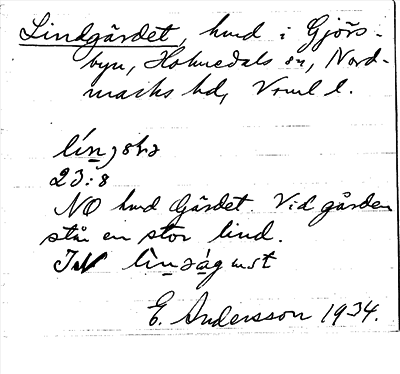 Lindgärdet, hmd i Gjörs-
byn, Holmedals sn, Nord-
marks hd, Vrml l.
23:8
NO hmd Gärdet. Vid gården
står en stor lind.
E. Andersson 1934.